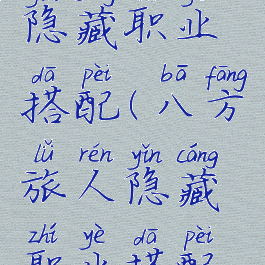 隐藏职业
dā pèi bā fāng
搭配(八方
lǚ rén yǐn cáng
旅人隐藏
zhí yè dā pèi
职业搭配